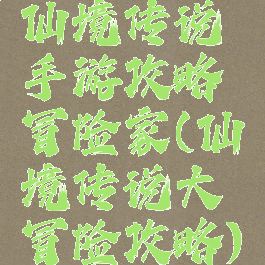 仙境传说
手游攻略
冒险家(仙
境传说大
冒险攻略)